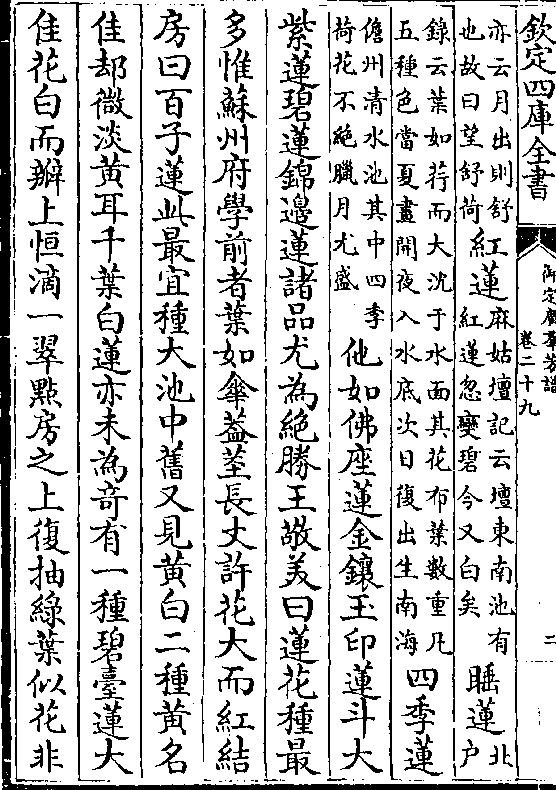 欽定四庫全書
御定廣羣芳譜
卷二十九
二
亦云月出則舒
也故曰望舒荷
紅蓮
麻姑壇記云壇東南池有
紅蓮忽變碧今又白矣
睡蓮
北
户
錄云葉如荇而大沈于水面其花布葉數重凡
五種色當夏晝開夜入水底次日復出生南海
四季蓮
儋州清水池其中四季
荷花不絶臘月尤盛
他如佛座蓮金鑲玉印蓮斗大
紫蓮碧蓮錦邊蓮諸品尤為絶勝王敬美曰蓮花種最
多惟蘇州府學前者葉如傘葢莖長丈許花大而紅結
房曰百子蓮此最宜種大池中舊又見黄白二種黄名
佳却微淡黄耳千葉白蓮亦未為奇有一種碧臺蓮大
佳花白而瓣上恒滴一翠點房之上復抽綠葉似花非